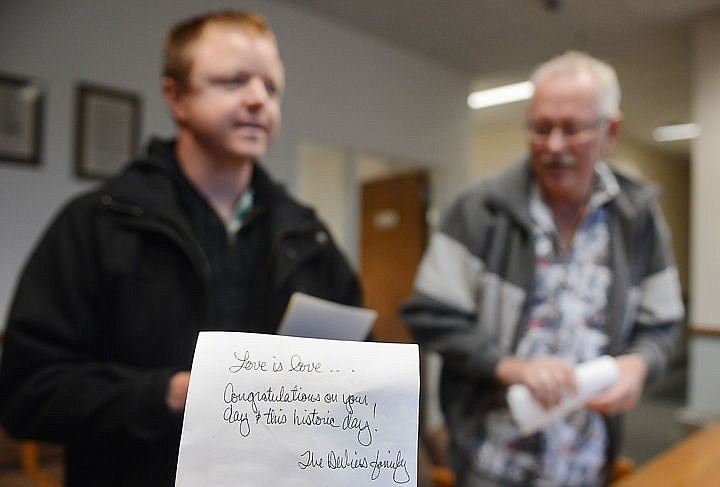 Love is Love....
Congratulations on your
day & this historic day!
The family